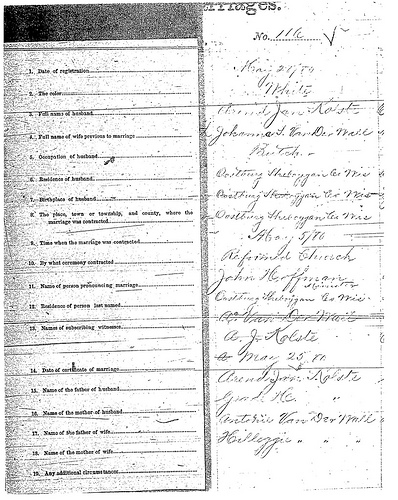 rriages.
No. 116
1. Date of registration
May 28/80
2. The color
White
3. Full name of husband
Arend Jan Kolste
4. Full name of wife previous to marriage
Johanna S. Van Der Wall
5. Occupation of husband
6. Residence of husband
Oostburg Sheboygan Co Wis
7. Birthplace of husband
Oostburg Sheboygan Co Wis
8. The place, town or township, and county, where the
marriage was contracted
Oostburg Sheboygan Co Wis
9. Time when the marriage was contracted
May 5/80
10. By what ceremony contracted
Reformed Church
11. Name of person pronouncing marriage
John Hoffman
Minister
12. Residence of person last named
Oostburg Sheboygan Co Wis
13. Names of subscribing witnesses
A. Van Der Wall
A. J. Kolste
14. Date of certificate of marriage
May 25, 80
15. Name of the father of husband
Arend Jan Kolste
16. Name of the mother of husband
17. Name of the father of wife
Van Der Wall
18. Name of the mother of wife
" " "
19. Any additional circumstances